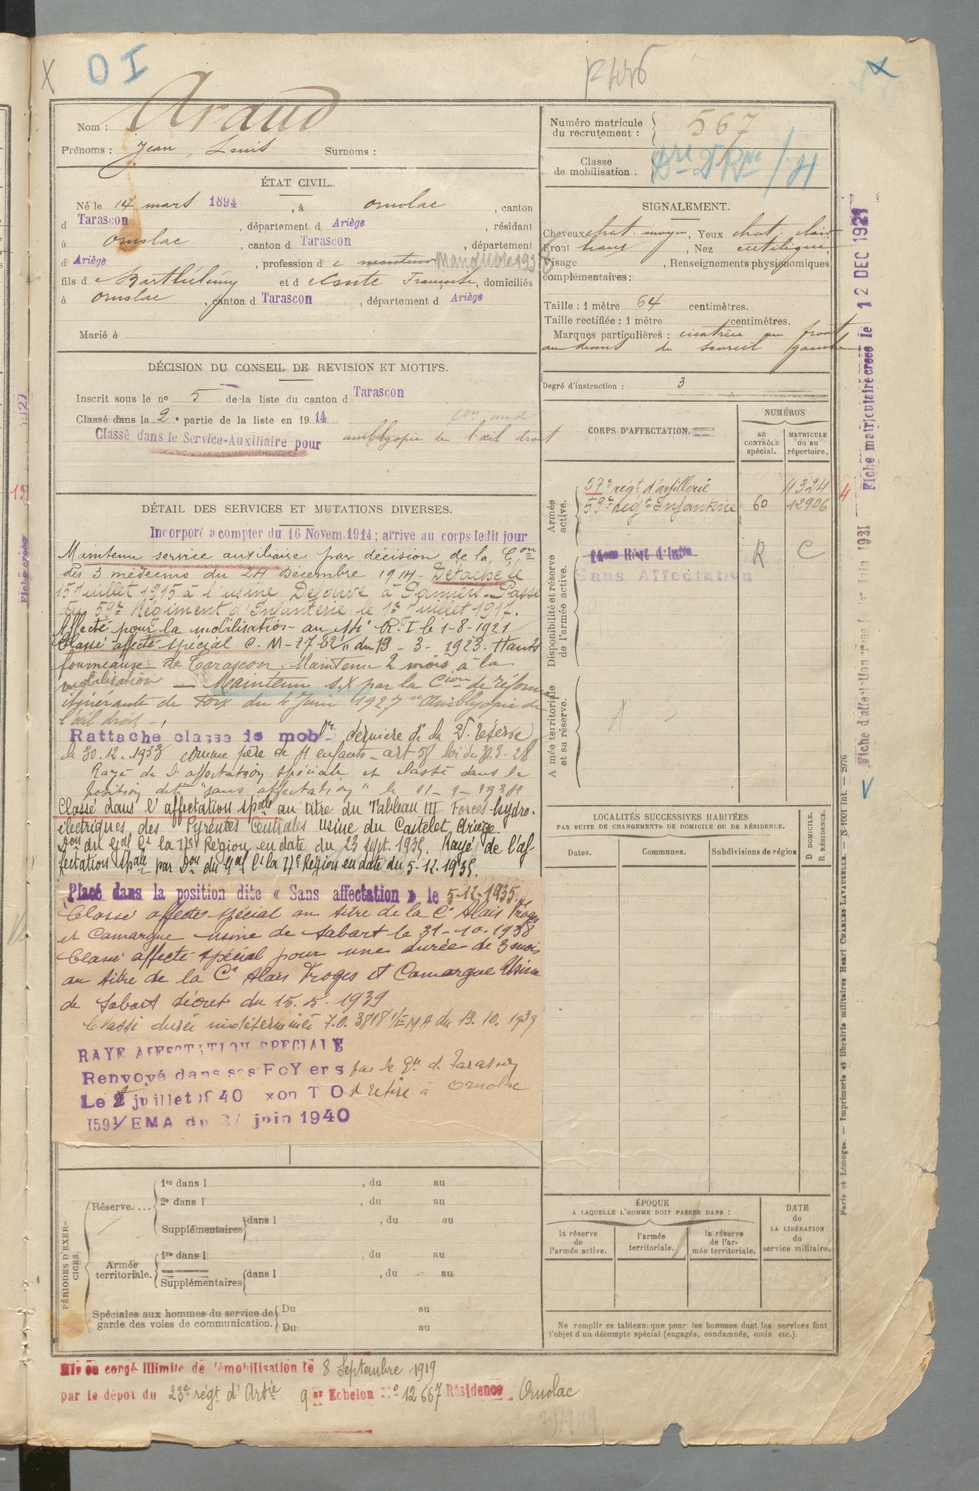 O I
Nom : Araud
Prénoms : Jean Louis Surnoms :
ÉTAT CIVIL.
Né le 14 mars 1894, à ornolac, canton
d Tarascon, département d Ariège, résidant
à Ornolac, canton d Tarascon, département
d Ariège, profession de Manœuvre
fils d Barthélémy et d Françoise, domiciliés
à Ornolac, canton d Tarascon, département d Ariège
Marié à
DÉCISION DU CONSEIL DE REVISION ET MOTIFS.
Inscrit sous le no 5 de la liste du canton d Tarascon
Classé dans la 2e partie de la liste en 1914
Classé dans le Service-Auxiliaire pour amblyopie de l'œil droit
DÉTAIL DES SERVICES ET MUTATIONS DIVERSES.
Incorporé a compter du 16 Novem.1914; arrive au corps ledit jour
Maintenu service auxiliaire par décision de la Con
des 3 médecins du 24 Décembre 1914. Détaché le
15 juillet 1915 à l'usine à Pamiers. Passé
au 59e Régiment d'Infanterie le 1er juillet 1917.
Affecté pour la mobilisation au R.I. le 1-8-1921
Classé affecté spécial C.M. du 19-3-1923. Hauts
fourneaux de Tarascon. Maintenu 2 mois à la
mobilisation — Maintenu SX par la Cion de réforme
itinérante de Foix du 4 Juin 1927 Amblyopie de
l'œil droit
Rattaché classe de mob dernière de la 2e réserve
le 30.12.1933 comme père de 4 enfants art 58 loi du 31.3.28
Rayé de l'affectation spéciale et classé dans la
position dite "sans affectation" le 11-9-1934
Classé dans l'affectation spale au titre du Tableau III Forces hydro-
électriques des Pyrénées Centrales usine du Castelet, Ariège
Don du Gal Ct la 17e Région en date du 23 sept. 1935. Rayé de l'af-
fectation spale par Don du Gal Ct la 17e Région en date du 5-12-1935.
Placé dans la position dite « Sans affectation » le 5-12-1935.
Classé affecté spécial au titre de la Cie Alais Froges
et Camargue usine de Sabart le 31-10-1938
Classé affecté spécial pour une durée de 3 mois
au titre de la Cie Alais Froges et Camargue Usine
de Sabart décret du 15.5.1939
Classé durée indéterminée I.O. 3818 1/EMA du 13.10.1939
RAYE AFFECTATION SPECIALE
Renvoyé dans ses Foyers par le Bn d. Tarascon
Le 2 juillet 1940 T O se retire à Ornolac
1591/EMA du juin 1940
PÉRIODES D'EXERCICES.
Réserve.... 1re dans l , du au
2e dans l , du au
Supplémentaires dans l , du au
Armée territoriale. 1re dans l , du au
Supplémentaires dans l , du au
Spéciales aux hommes du service de garde des voies de communication. Du au
Du au
Mis en congé illimité de démobilisation le 8 Septembre 1919
par le dépôt du 23e régt d'Artie 9er Echelon No 12667 Résidence Ornolac
Numéro matricule du recrutement : 567
Classe de mobilisation :
SIGNALEMENT.
Cheveux chat. moyen, Yeux chat. clair
Front haut, Nez
Visage , Renseignements physionomiques
complémentaires :
Taille : 1 mètre 64 centimètres.
Taille rectifiée : 1 mètre centimètres.
Marques particulières : cicatrice au front
au dessus du sourcil gauche
Degré d'instruction : 3
CORPS D'AFFECTATION.
NUMÉROS
AU CONTRÔLE SPÉCIAL.
MATRICULE OU AU RÉPERTOIRE.
Armée active.
57e régt d'artillerie 11324
59e régt Infanterie 60 12906
Disponibilité et réserve de l'armée active.
R C
Sans Affectation
Armée territoriale et sa réserve.
LOCALITÉS SUCCESSIVES HABITÉES
PAR SUITE DE CHANGEMENTS DE DOMICILE OU DE RÉSIDENCE.
Dates. Communes. Subdivisions de région D DOMICILE. R RÉSIDENCE.
ÉPOQUE
A LAQUELLE L'HOMME DOIT PASSER DANS :
la réserve de l'armée active.
l'armée territoriale.
la réserve de l'armée territoriale.
DATE DE LA LIBÉRATION du service militaire.
Ne remplir ce tableau que pour les hommes dont les services font
l'objet d'un décompte spécial (engagés, condamnés, omis etc.).
Fiche matriculaire créée le 12 DEC 1921
Paris et Limoges. — Imprimerie et librairie militaires Henri CHARLES-LAVAUZELLE.